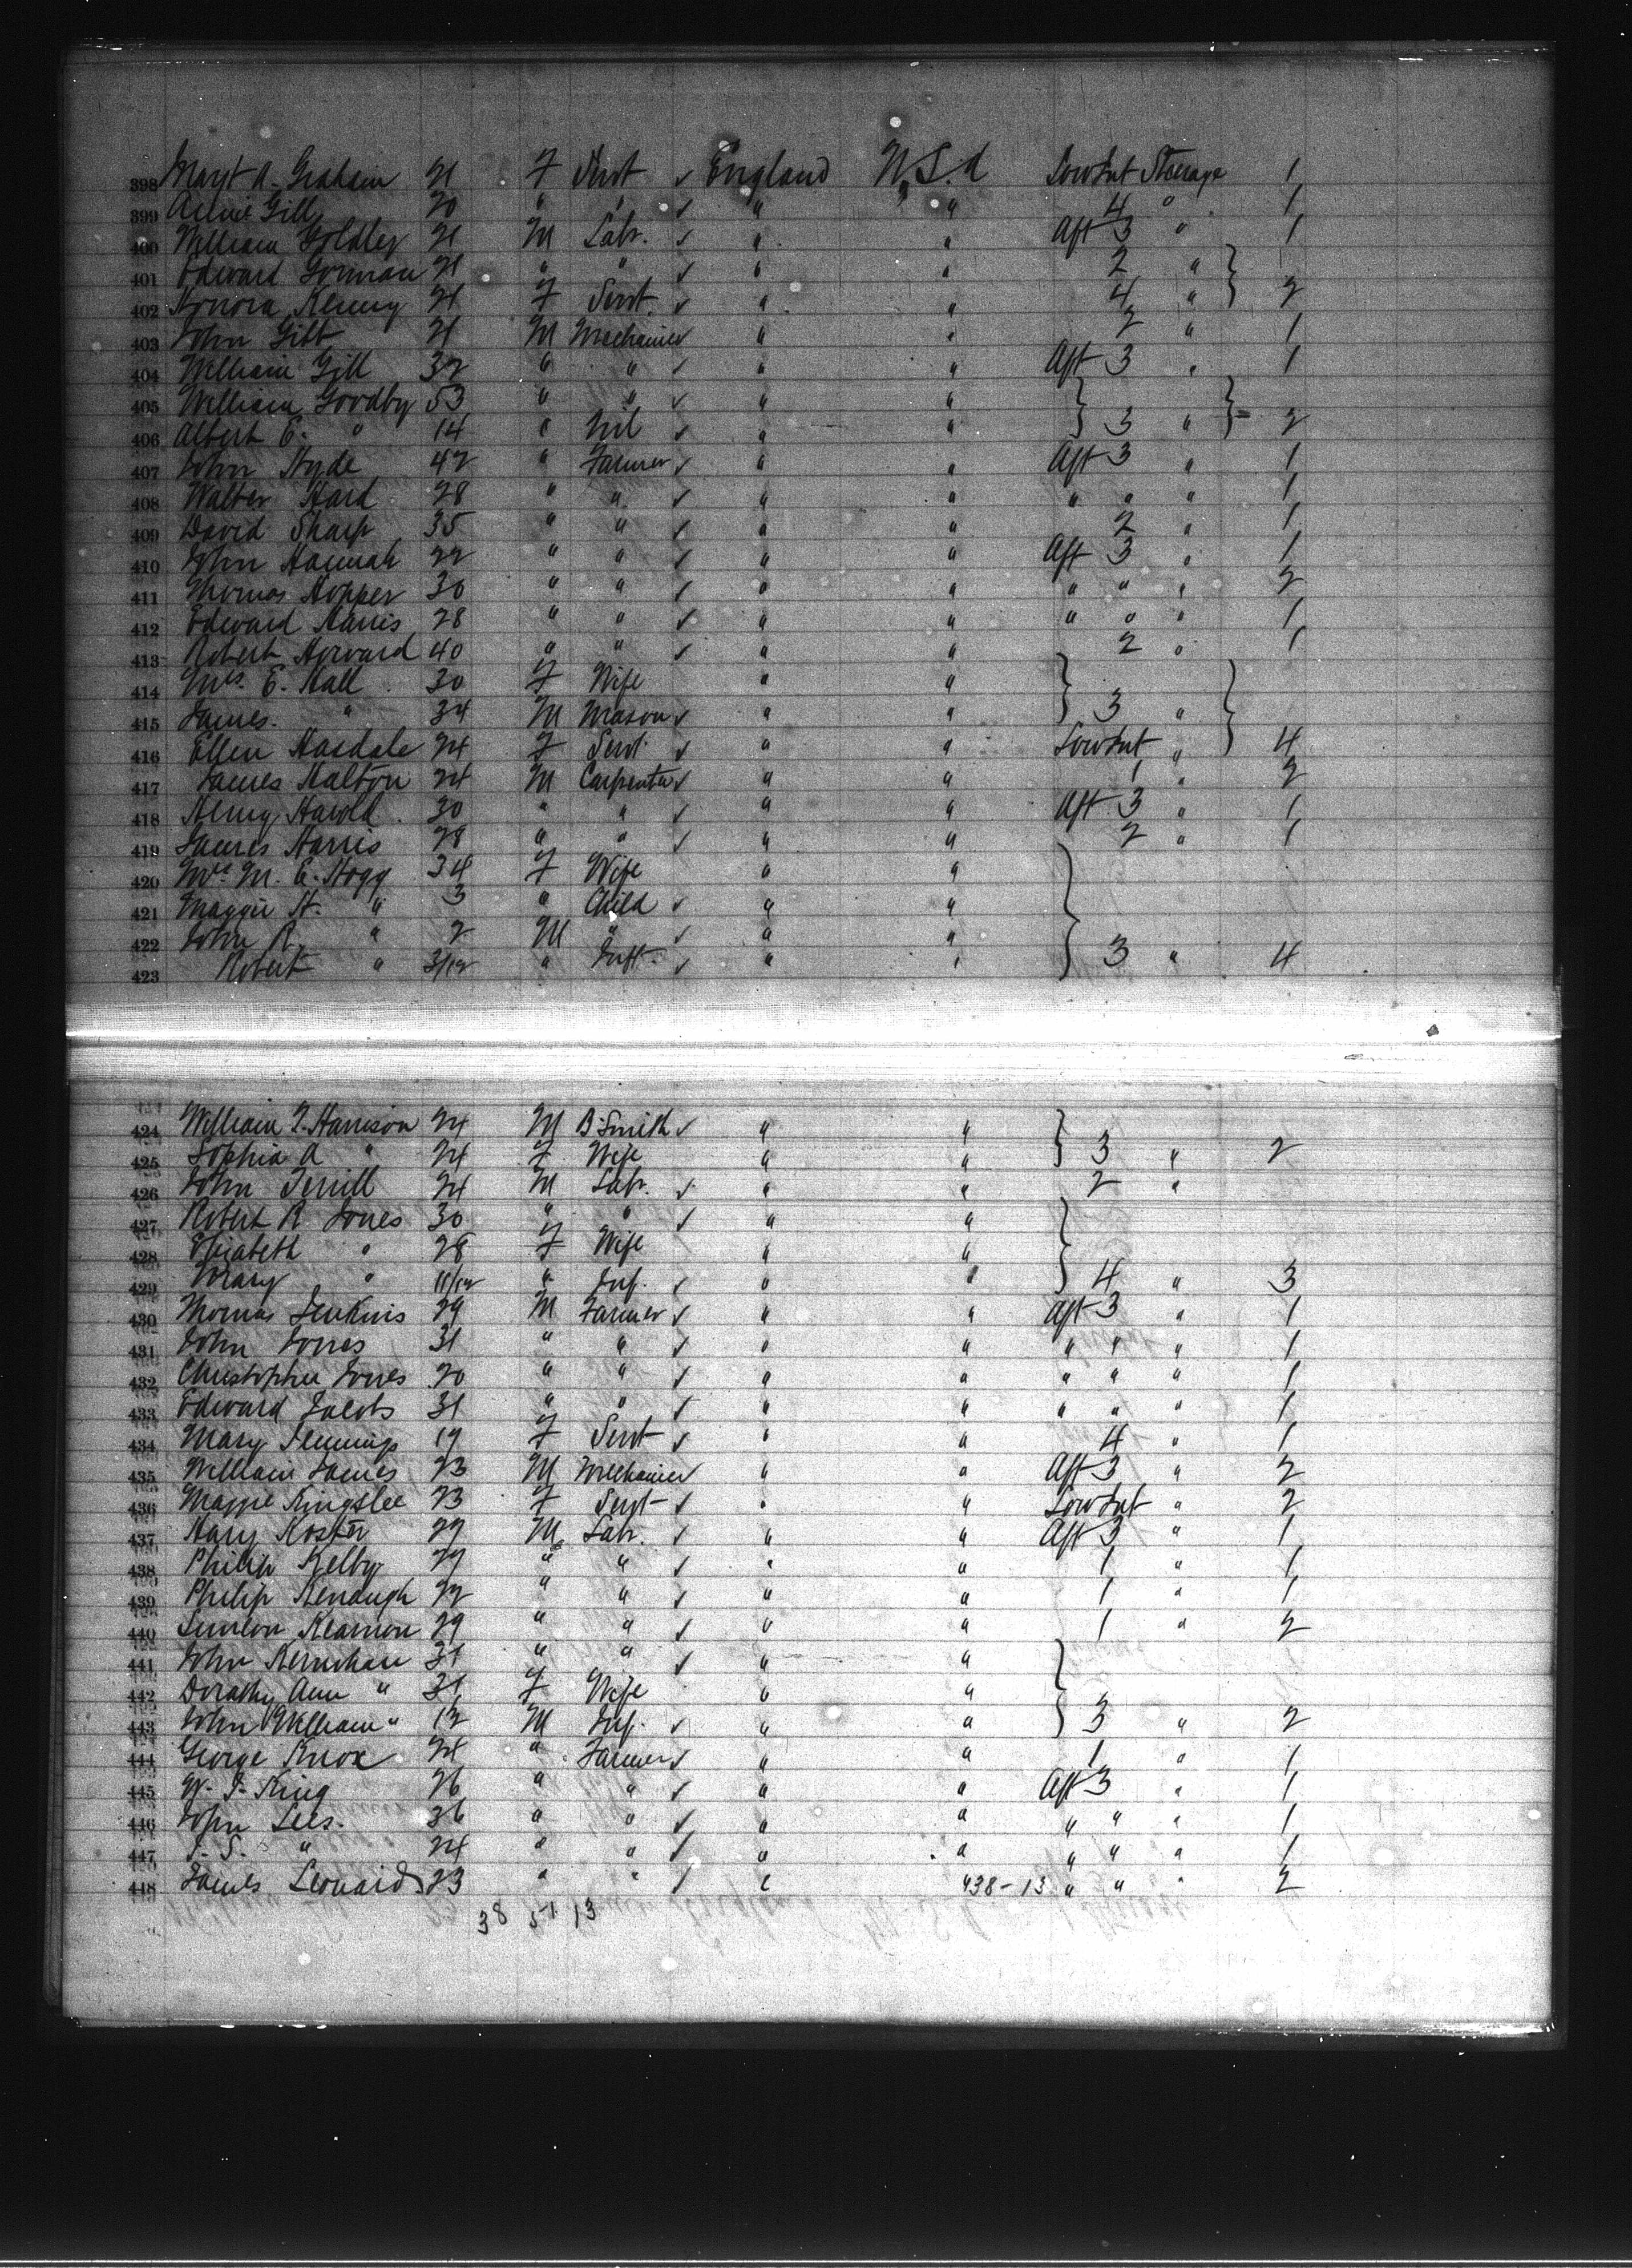 398 Mary A. Graham 21 F Servt ✓ England U.S.A Low Int Steerage 1
399 Annie Gill 20 " " ✓ " " 4 " 1
400 William Goldley 21 M Labr. ✓ " " Aft 3 " 1
401 Edward Gorman 21 " " ✓ " " 2 "
402 Honora Kenny 21 F Servt. ✓ " " 4 " 2
403 John Gibb 21 M Mechanic ✓ " " 2 " 1
404 William Gill 32 " " ✓ " " Aft 3 " 1
405 William Goodby 53 " " ✓ " "
406 Albert E. " 14 " Nil ✓ " " 3 " 2
407 John Hyde 42 " Farmer ✓ " " Aft 3 " 1
408 Walter Hard 28 " " ✓ " " " " " 1
409 David Sharp 35 " " ✓ " " 2 " 1
410 John Hannah 22 " " ✓ " " Aft 3 " 1
411 Thomas Hopper 30 " " ✓ " " " " " 2
412 Edward Harris 28 " " ✓ " " " " " 1
413 Robert Howard 40 " " ✓ " " 2 " 1
414 Mrs. E. Hall 30 F Wife " "
415 James. " 34 M Mason ✓ " " 3 "
416 Ellen Hasdale 24 F Servt. ✓ " " Low Int " 4
417 James Halton 24 M Carpenter ✓ " " 1 " 2
418 Henry Harold 30 " " ✓ " " Aft 3 " 1
419 James Harris 28 " " ✓ " " 2 " 1
420 Mrs. M. E. Hogg 34 F Wife " "
421 Maggie H. " 3 " Child ✓ " "
422 John R. " 2 M " ✓ " "
423 Robert " 3/12 " Inft. ✓ " " 3 " 4
424 William T. Harrison 24 M B. Smith ✓ " "
425 Sophia A " 24 F Wife " " 3 " 2
426 John Terrill 24 M Labr. ✓ " " 2 "
427 Robert R. Jones 30 " " ✓ " "
428 Elizabeth " 28 F Wife " "
429 Mary " 11/12 " Inf. ✓ " " 4 " 3
430 Thomas Jenkins 29 M Farmer ✓ " " Aft 3 " 1
431 John Jones 31 " " ✓ " " " " " 1
432 Christopher Jones 20 " " ✓ " " " " " 1
433 Edward Jacobs 31 " " ✓ " " " " " 1
434 Mary Jennings 19 F Servt ✓ " " 4 " 1
435 William James 23 M Mechanic ✓ " " Aft 3 " 2
436 Maggie Kingslee 23 F Servt ✓ " " Low Int " 2
437 Harry Koster 22 M Labr. ✓ " " Aft 3 " 1
438 Philip Kelby " " ✓ " " 1 " 1
439 Philip Kenaugh 22 " " ✓ " " 1 " 1
440 Kearnon 29 " " ✓ " " 1 " 2
441 John 31 " " ✓ " "
442 Dorathy Ann " 31 F Wife " "
443 John William " 12 M Inf. ✓ " " 3 " 2
444 George Knox 24 " Farmer ✓ " " 1 " 1
445 W. J. King 26 " " ✓ " " Aft 3 " 1
446 John Lees. 36 " " ✓ " " " " " 1
447 J. S. " 24 " " ✓ " " " " " 1
448 James Leonard 23 " " ✓ " 438-13 " " " 2
38 51 13